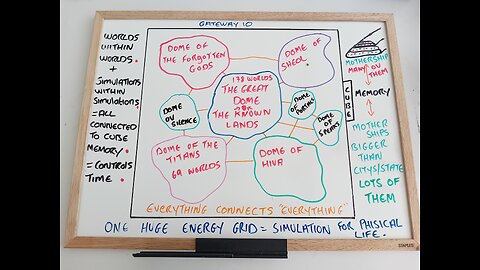 GATEWAY 10
WORLDS
WITHIN
WORLDS.
+
SIMULATIONS
WITHIN
SIMULATIONS.
=ALL
CONNECTED
TO CUBE
MEMORY.
=CONTROLS
TIME.
DOME OF
THE FORGOTTEN
GODS
DOME OF
SHEOL
178 WORLDS
THE GREAT
DOME
THE KNOWN
LANDS
DOME
OV SILENCE
DOME OF
DOME
OF SPEARS
DOME OF THE
TITANS
69 WORLDS
DOME OF
HIVA
EVERYTHING CONNECTS "EVERYTHING"
CUBE
MOTHERSHIP
MANY OV
THEM
MEMORY
MOTHER
SHIPS
BIGGER
THAN
CITYS/STATE
LOTS OF
THEM
ONE HUGE ENERGY GRID = SIMULATION FOR PHISICAL
LIFE.
STAPLES